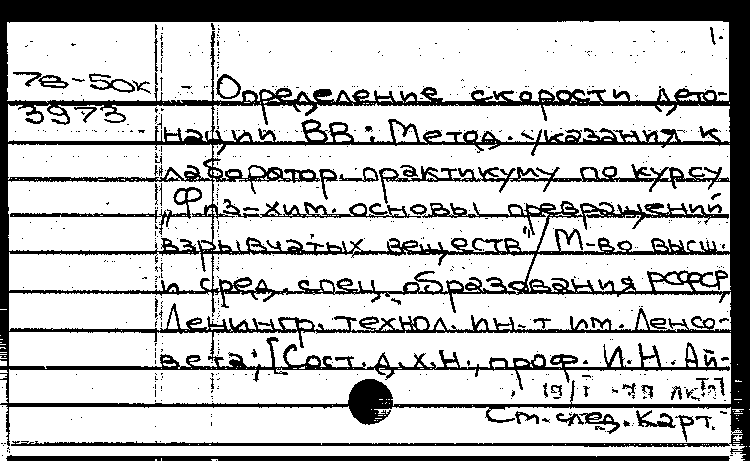 1.
78-50к - Определение скорости дето-
3973
нации ВВ: Метод. указания к
лаборатор. практикуму по курсу
"Физ-хим. основы превращений
взрывчатых веществ" / М-во высш.
и сред. спец. образования РСФСР,
Ленингр. технол. ин-т им. Ленсо-
вета; [Сост. д.х.н., проф. И.Н. Ай-
19/I -79
См. след. карт.